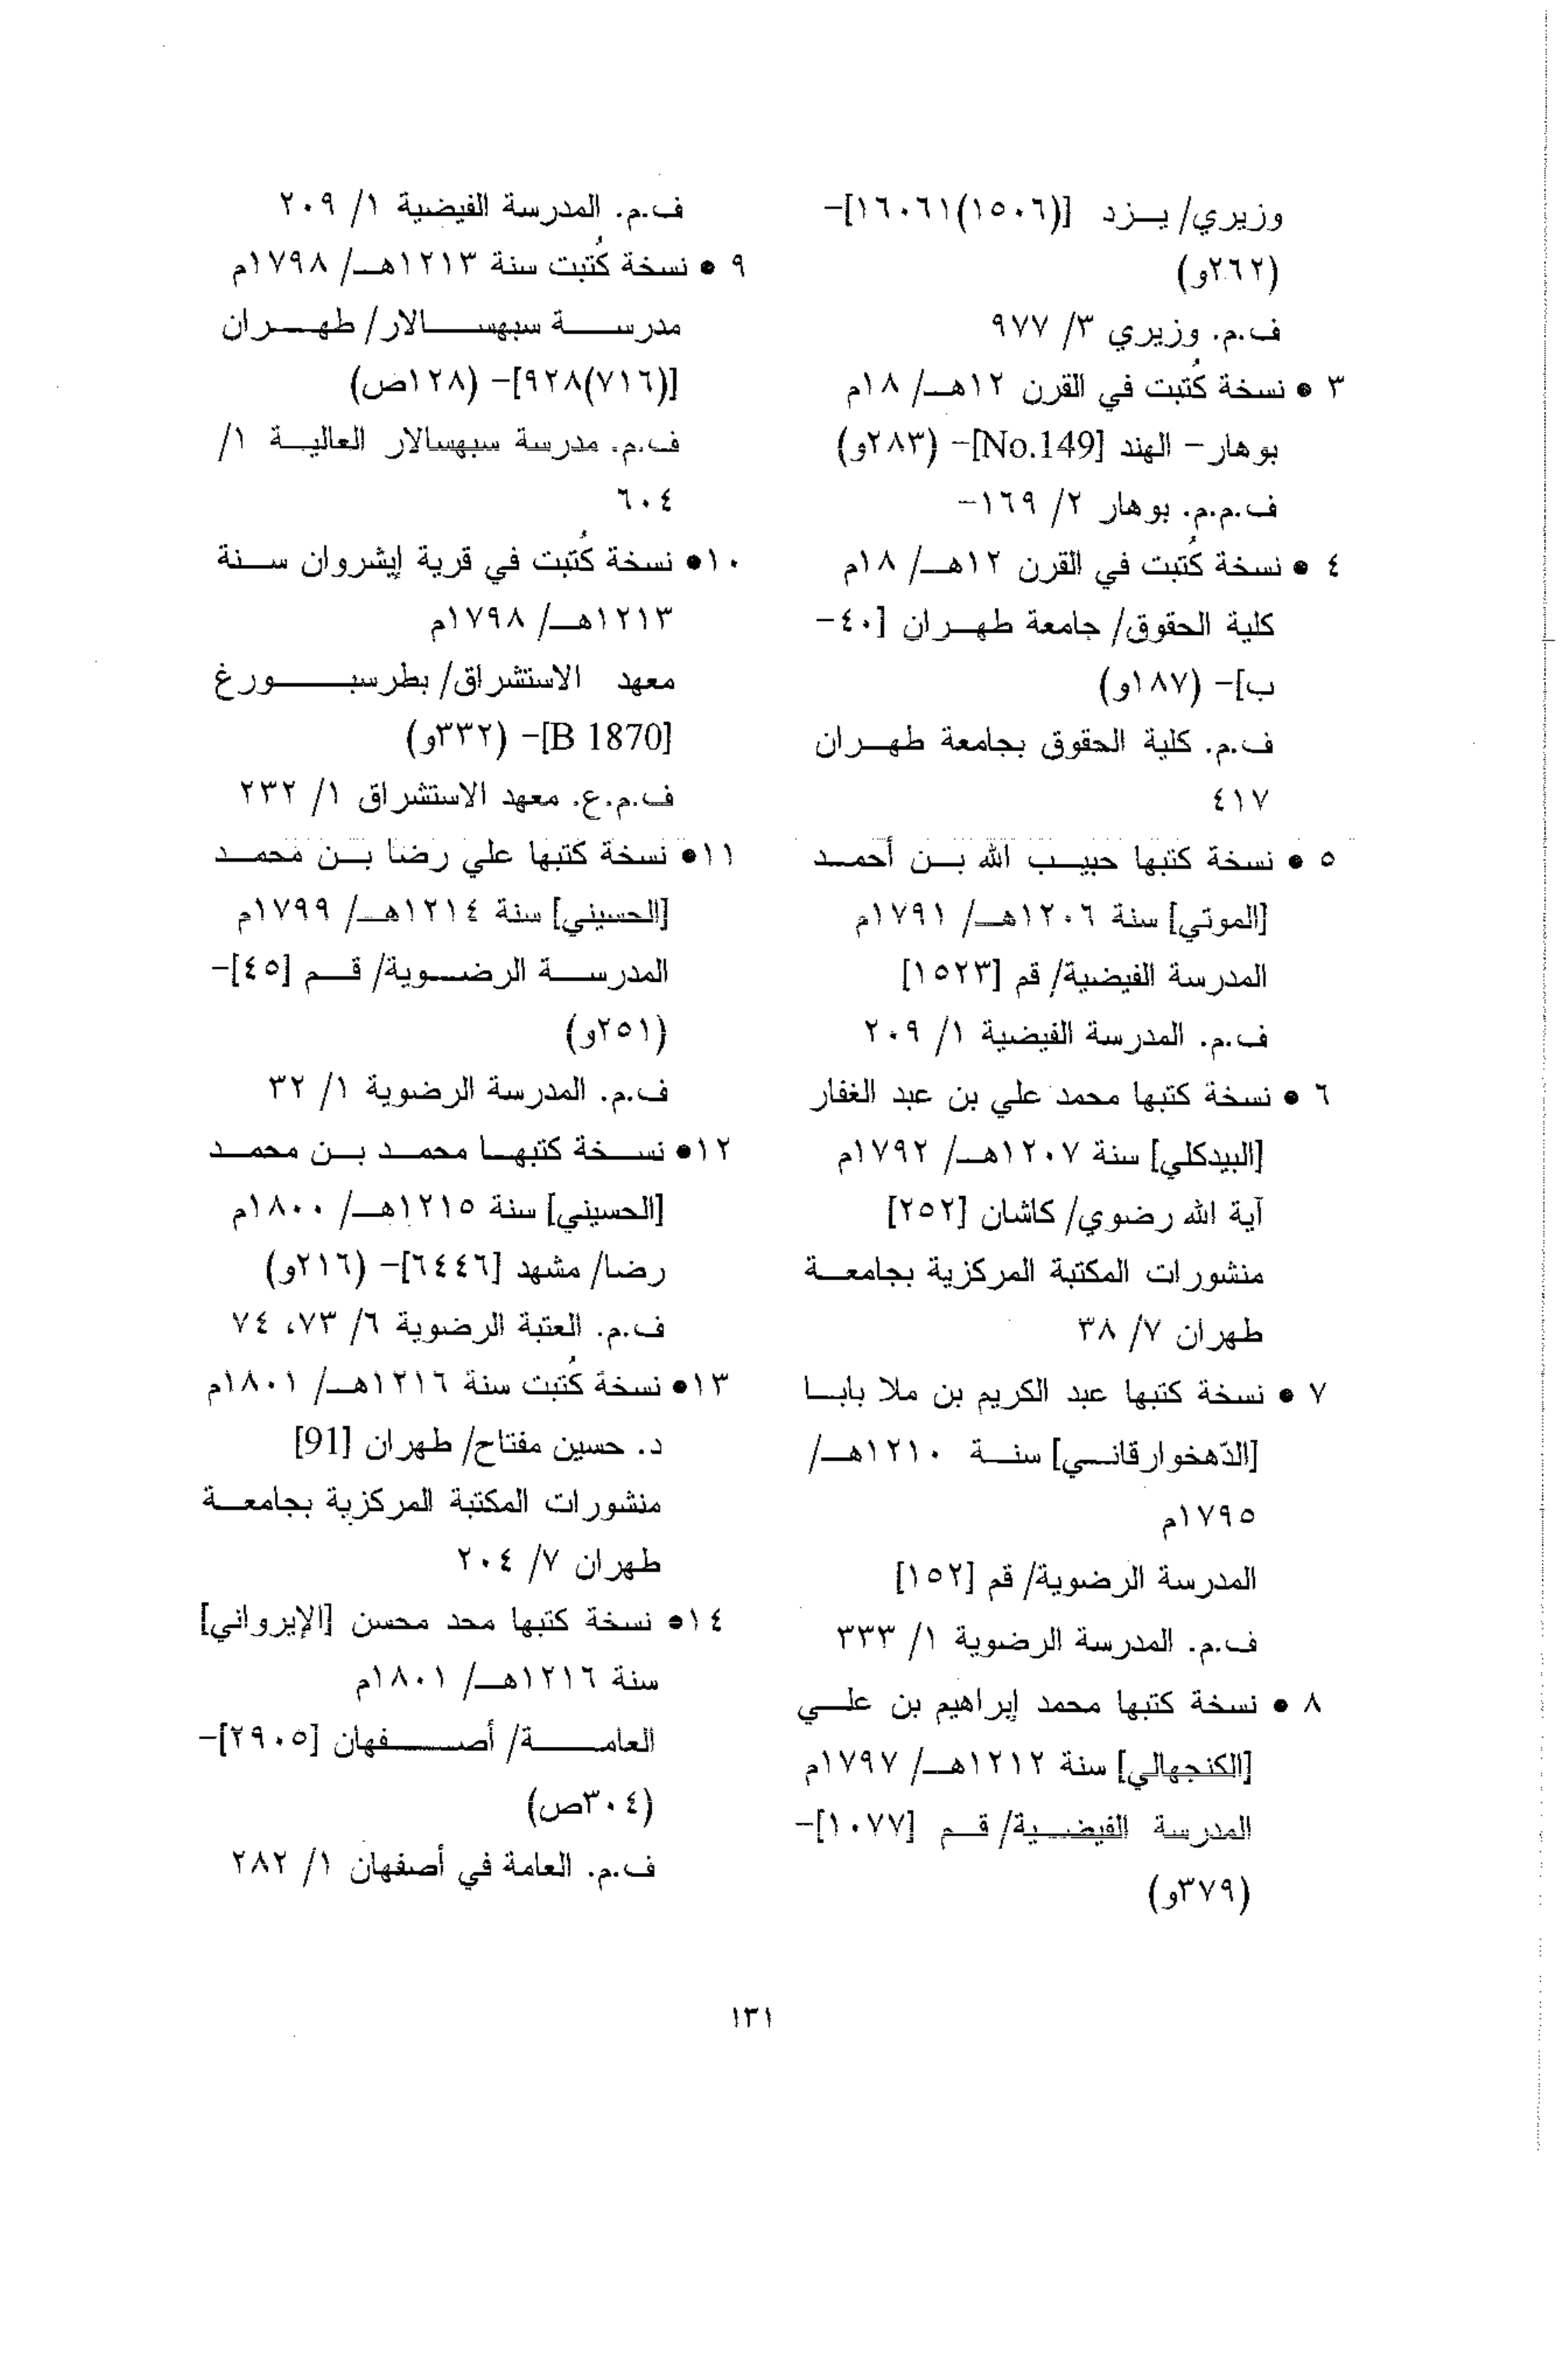 وزيري/ يزد [(١٥٠٦)١٦٠٦١]-
(٢٦٢و)
ف.م. وزيري ٣/ ٩٧٧
٣ • نسخة كُتبت في القرن ١٢هـ/ ١٨م
بوهار- الهند [No.149]- (٢٨٣و)
ف.م.م. بوهار ٢/ ١٦٩-
٤ • نسخة كُتبت في القرن ١٢هـ/ ١٨م
كلية الحقوق/ جامعة طهران [٤٠-
ب]- (١٨٧و)
ف.م. كلية الحقوق بجامعة طهران
٤١٧
٥ • نسخة كتبها حبيب الله بن أحمد
[الموتي] سنة ١٢٠٦هـ/ ١٧٩١م
المدرسة الفيضية/ قم [١٥٢٣]
ف.م. المدرسة الفيضية ١/ ٢٠٩
٦ • نسخة كتبها محمد علي بن عبد الغفار
[البيدكلي] سنة ١٢٠٧هـ/ ١٧٩٢م
آية الله رضوي/ كاشان [٢٥٢]
منشورات المكتبة المركزية بجامعة
طهران ٧/ ٣٨
٧ • نسخة كتبها عبد الكريم بن ملا بابا
[الدّهخوارقاني] سنة ١٢١٠هـ/
١٧٩٥م
المدرسة الرضوية/ قم [١٥٢]
ف.م. المدرسة الرضوية ١/ ٣٣٣
٨ • نسخة كتبها محمد إبراهيم بن علي
[الكنجهالي] سنة ١٢١٢هـ/ ١٧٩٧م
المدرسة الفيضية/ قم [١٠٧٧]-
(٣٧٩و)
ف.م. المدرسة الفيضية ١/ ٢٠٩
٩ • نسخة كُتبت سنة ١٢١٣هـ/ ١٧٩٨م
مدرسة سبهسالار/ طهران
[(٧١٦)٩٢٨]- (١٢٨ص)
ف.م. مدرسة سبهسالار العالية ١/
٦٠٤
١٠• نسخة كُتبت في قرية إيشروان سنة
١٢١٣هـ/ ١٧٩٨م
معهد الاستشراق/ بطرسبورغ
[B 1870]- (٣٣٢و)
ف.م.ع. معهد الاستشراق ١/ ٢٣٢
١١• نسخة كتبها علي رضا بن محمد
[الحسيني] سنة ١٢١٤هـ/ ١٧٩٩م
المدرسة الرضوية/ قم [٤٥]-
(٢٥١و)
ف.م. المدرسة الرضوية ١/ ٣٢
١٢• نسخة كتبها محمد بن محمد
[الحسيني] سنة ١٢١٥هـ/ ١٨٠٠م
رضا/ مشهد [٦٤٤٦]- (٢١٦و)
ف.م. العتبة الرضوية ٦/ ٧٣، ٧٤
١٣• نسخة كُتبت سنة ١٢١٦هـ/ ١٨٠١م
د. حسين مفتاح/ طهران [91]
منشورات المكتبة المركزية بجامعة
طهران ٧/ ٢٠٤
١٤• نسخة كتبها محد محسن [الإيرواني]
سنة ١٢١٦هـ/ ١٨٠١م
العامة/ أصفهان [٢٩٠٥]-
(٣٠٤ص)
ف.م. العامة في أصفهان ١/ ٢٨٢
١٣١